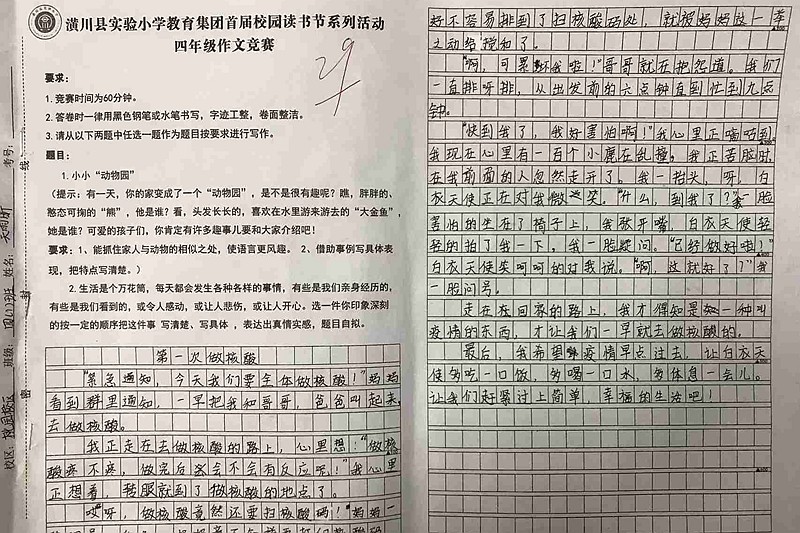 潢川县实验小学教育集团首届校园读书节系列活动
四年级作文竞赛
29
要求：
1.竞赛时间为60分钟。
2.答卷时一律用黑色钢笔或水笔书写，字迹工整，卷面整洁。
3.请从以下两题中任选一题作为题目按要求进行写作。
题目：
1.小小“动物园”
(提示：有一天，你的家变成了一个“动物园”，是不是很有趣呢？瞧，胖胖的、
憨态可掬的“熊”，他是谁？看，头发长长的，喜欢在水里游来游去的“大金鱼”，
她是谁？可爱的孩子们，你肯定有许多趣事儿要和大家介绍吧！
要求：1、能抓住家人与动物的相似之处，使语言更风趣。 2、借助事例写具体表
现，把特点写清楚。）
2.生活是个万花筒，每天都会发生各种各样的事情，有些是我们亲身经历的，
有些是我们看到的，或令人感动，或让人悲伤，或让人开心。选一件你印象深刻
的按一定的顺序把这件事 写清楚、写具体 ，表达出真情实感，题目自拟。
第一次做核酸
“紧急通知，今天我们要全体做核酸！”妈妈
看到群里通知，一早把我和哥哥，爸爸叫起来，
去做核酸。
我正走在去做核酸的路上，心里想：“做核
酸疼不疼，做完后会不会有反应呢！”我心里
正想着，转眼就到了做核酸的地点了。
“哎呀，做核酸竟然还要扫核酸码！”妈妈一
校区：
班级：四(1)班
姓名：
考号：
密
封
线
好不容易排到了扫核酸码处，就被妈妈这一举
之动给搅和了。
“啊，可累坏我啦！”哥哥就在抱怨道。我们
一直排呀排，从出发前的六点钟直到忙到九点
钟。
“快到我了，我好害怕啊！”我心里正嘀咕到，
我现在心里有一百个小鹿在乱撞。我正苦脑时，
在我前面的人忽然走开了。我一抬头，呀，白
衣天使正在对我微笑。“什么，到我了？”我一脸
害怕的坐在了椅子上，我张开嘴，白衣天使轻
轻的拍了我一下，我一脸疑问。“已经做好啦！”
白衣天使笑呵呵的对我说。“啊，这就好了？”我
一脸问号。
走在在回家的路上，我才得知是一种叫
疫情的东西，才让我们一早就去做核酸的。
最后，我希望疫情早点过去，让白衣天
使多吃一口饭，多喝一口水，多休息一会儿。
让我们好累过上简单，幸福的生活吧！